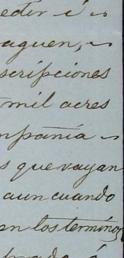 eder é
aguen,
scripciones
mil acres
mpañia
s que vayan
aun cuando
en los términos